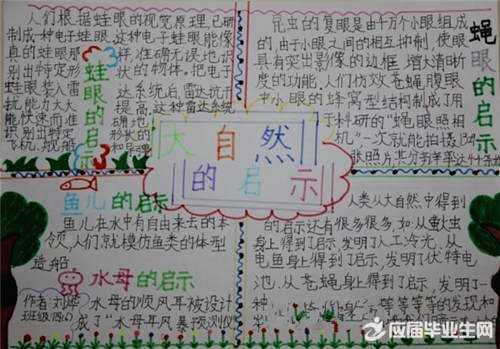 人们根据蛙眼的视觉原理,已研
制成一种电子蛙眼。这种电子蛙眼能像
真的蛙眼那样,准确无误地识
别出特定形状的物体。把电子
蛙眼装入雷达系统后,雷达抗干
扰能力大大提高。这种雷达系统
能快速而准确地
识别出特定形状的
飞机、舰船和导弹
蛙眼的启示
昆虫的复眼是由千万个小眼组成
的,由于小眼之间的相互抑制,使眼
具有突出影像的边框,增大清晰
度的功能。人们仿效苍蝇复眼
中小眼的蜂窝型结构制成了用
于科研的“蝇眼照相
机”一次就能拍摄
张照片
蝇眼的启示
大自然
的启示
鱼儿的启示
鱼儿在水中有自由来去的本
领,人们就模仿鱼类的体型
造船
水母的启示
水母的顺风耳被设计
成了“水母耳风暴预测仪
作者:
班级:
人类从大自然中得到
的启示还有很多很多,如:从萤火虫
身上得到了启示,发明了人工冷光、从
电鱼身上得到了启示,发明了伏特电
池、从苍蝇身上得到了启示,发明了一
种
等等等等的发现和
应届毕业生网